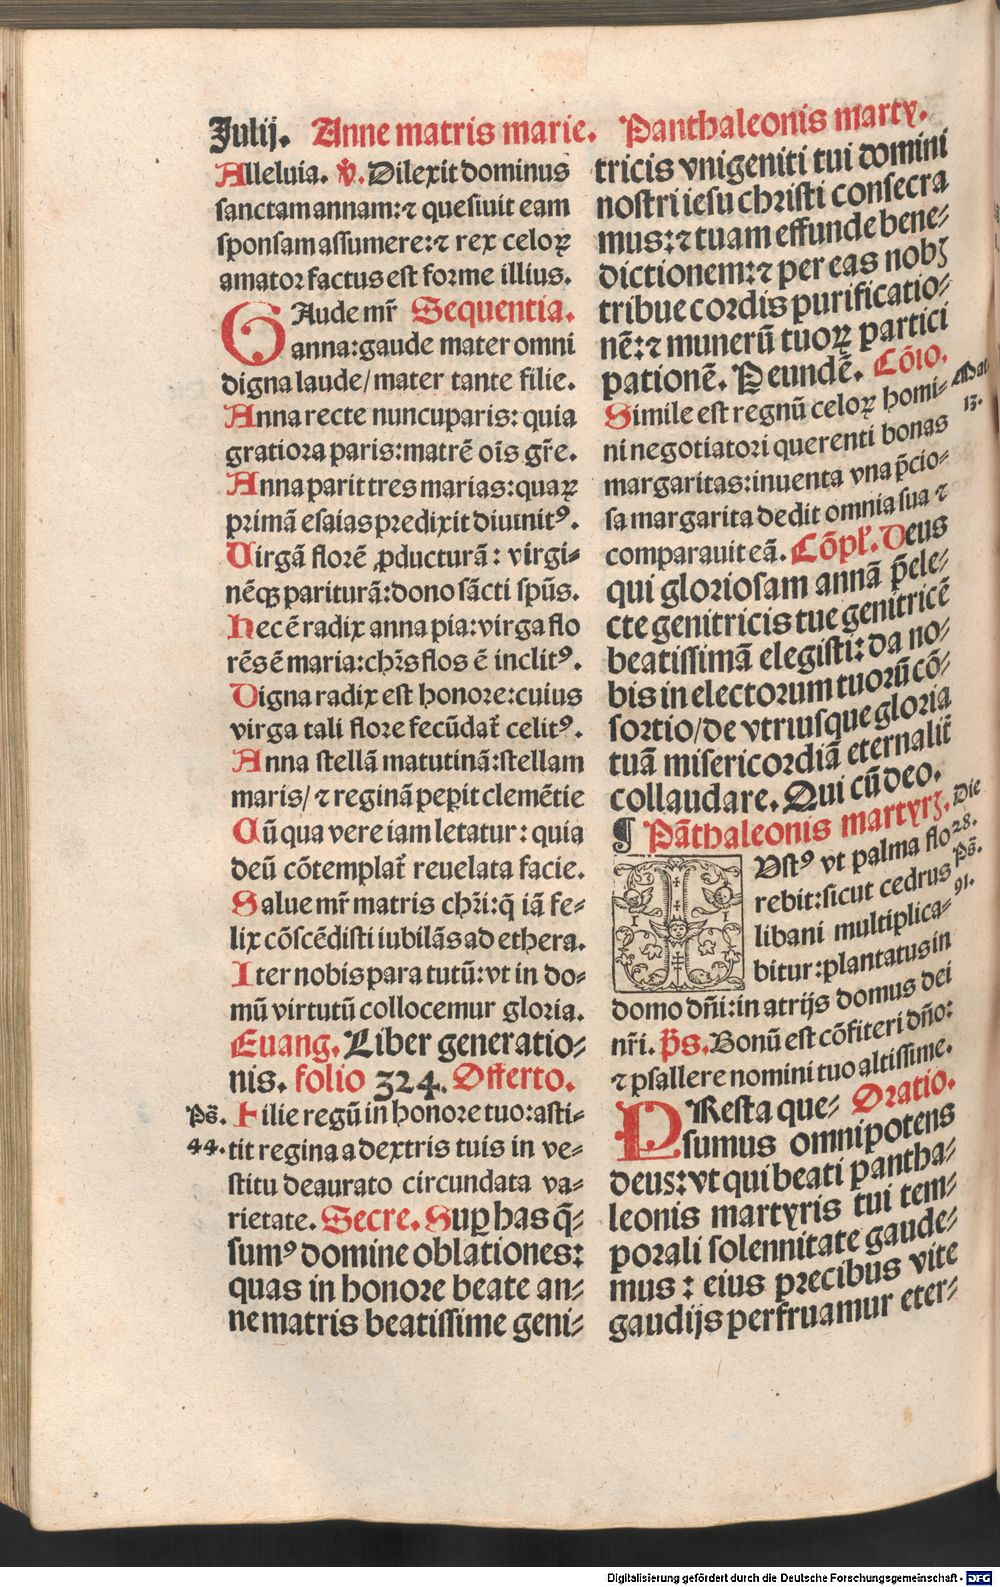 Julij. Anne matris marie. Panthaleonis marty.
Alleluia. ℣. Dilexit dominus
sanctam annam:⁊ quesiuit eam
sponsam assumere:⁊ rex celoꝝ
amator factus est forme illius.
GAude mr̄ Sequentia.
anna:gaude mater omni
digna laude/mater tante filie.
Anna recte nuncuparis: quia
gratiora paris:matrē oīs gr̄e.
Anna parit tres marias:quaꝝ
primā esaias predixit diuinitꝰ.
Uirgā florē ꝓducturā: virgi⸗
nēqꝫ pariturā:dono sācti spūs.
Hec ē radix anna pia:virga flo
rēs ē maria:chr̄s flos ē inclitꝰ.
Digna radix est honore:cuius
virga tali flore fecūdat̄ celitꝰ.
Anna stellā matutinā:stellam
maris/ ⁊ reginā peꝑit clemētie
Cū qua vere iam letatur: quia
deū cōtemplat̄ reuelata facie.
Salue mr̄ matris chr̄i:q̄ iā fe⸗
lix cōscēdisti iubilās ad ethera.
Iter nobis para tutū:vt in do⸗
mū virtutū collocemur gloria.
Euang. Liber generatio⸗
nis. folio 324. Offerto.
Ps̄. Filie regū in honore tuo:asti⸗
44. tit regina a dextris tuis in ve⸗
stitu deaurato circundata va⸗
rietate. Secre. Suꝑ has q̄⸗
sumꝰ domine oblationes:
quas in honore beate an⸗
ne matris beatissime geni⸗
tricis vnigeniti tui domini
nostri iesu christi consecra
mus:⁊ tuam effunde bene⸗
dictionem:⁊ per eas nobꝫ
tribue cordis purificatio⸗
nē:⁊ munerū tuoꝝ partici
pationē. Per eundē. Cōio.
Simile est regnū celoꝝ homi⸗ Mat.
13.
ni negotiatori querenti bonas
margaritas:inuenta vna p̄cio⸗
sa margarita dedit omnia sua ⁊
comparauit eā. Cōpl̄. Deus
qui gloriosam annā p̄ele⸗
cte genitricis tue genitricē
beatissimā elegisti: da no⸗
bis in electorum tuorū cō⸗
sortio/de vtriusque gloria
tuā misericordiā eternalit̄
collaudare. Qui cū deo.
¶ Pāthaleonis martyrꝫ. Die
28.
IUstꝰ vt palma flo Ps̄.
91.
rebit:sicut cedrus
libani multiplica⸗
bitur:plantatus in
domo dn̄i:in atrijs domus dei
nr̄i. ps̄. Bonū est cōfiteri dn̄o:
⁊ psallere nomini tuo altissime.
PResta que⸗ Oratio.
sumus omnipotens
deus:vt qui beati pantha⸗
leonis martyris tui tem⸗
porali solennitate gaude⸗
mus: eius precibus vite
gaudijs perfruamur eter⸗
Digitalisierung gefördert durch die Deutsche Forschungsgemeinschaft - DFG